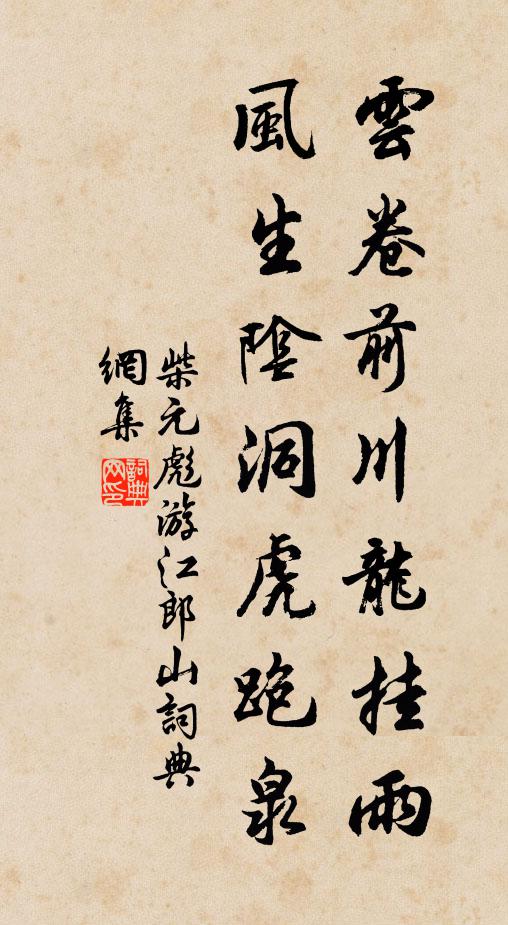 雲卷前川龍挂雨
風生陰洞虎跑泉
柴元彪游江郎山詞典
網集
詞典网印